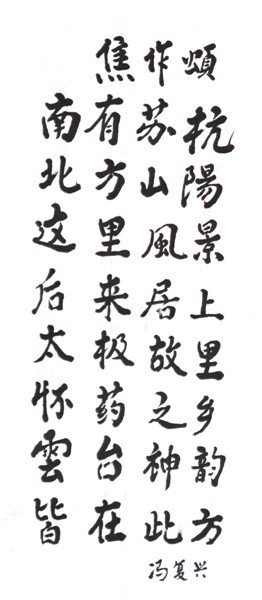 頌杭陽景上里乡韵方
作苏山風居故之神此
焦有方里来极药台在
南北这后太怀雲皆
冯复兴